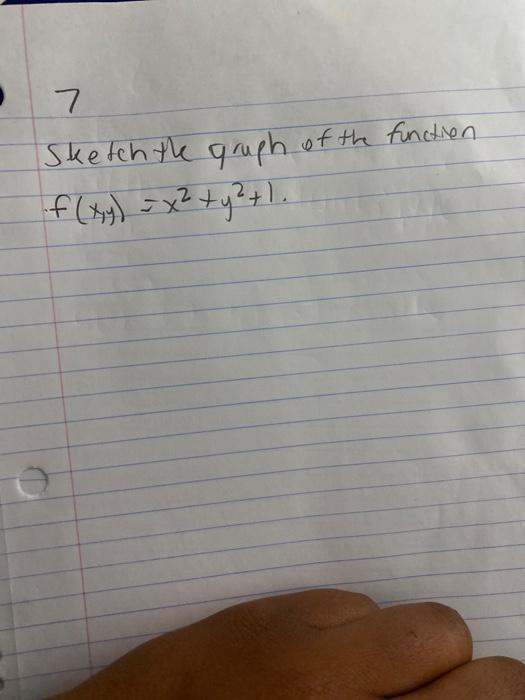 7
Sketch the graph of the function
f(x,y) = x² + y² + 1.